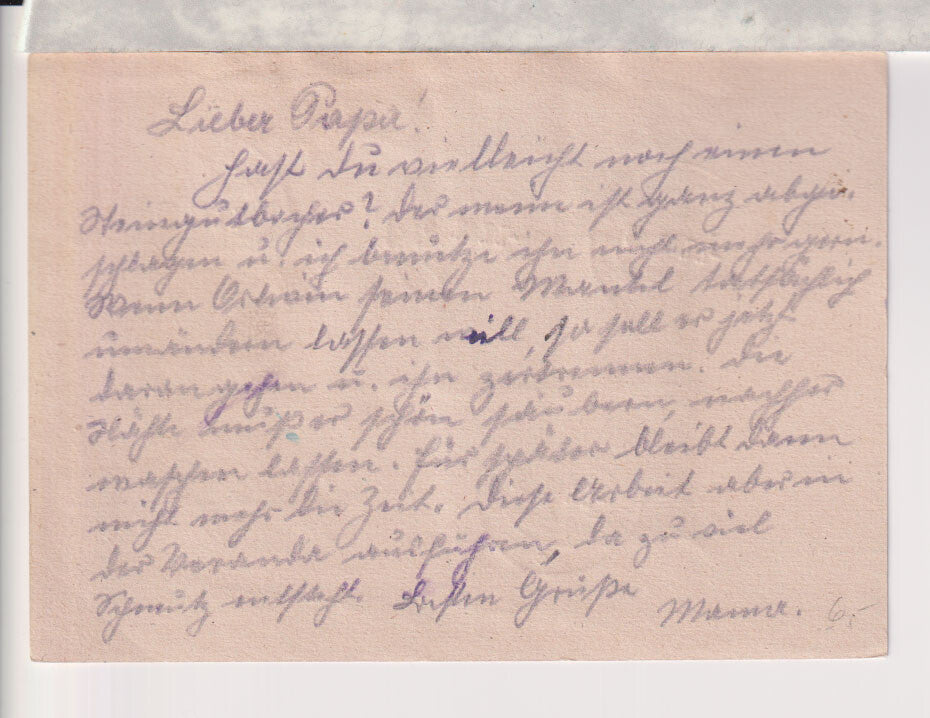 Lieber Papa!
Hast Du vielleicht noch einen
Steingutbecher? Der meine ist ganz abge-
schlagen u. ich benutze ihn nicht mehr gern.
Wenn Erwin seinen Mantel tatsächlich
umändern lassen will, so soll er jetzt
daran gehen u. ihn zertrennen. Die
Nähte muß er schön säubern, nachher
waschen lassen. Für später bleibt dann
nicht mehr die Zeit. Diese Arbeit aber in
der Veranda ausführen, da zu viel
Schmutz entsteht. Besten Grüße
Mama. 6,-